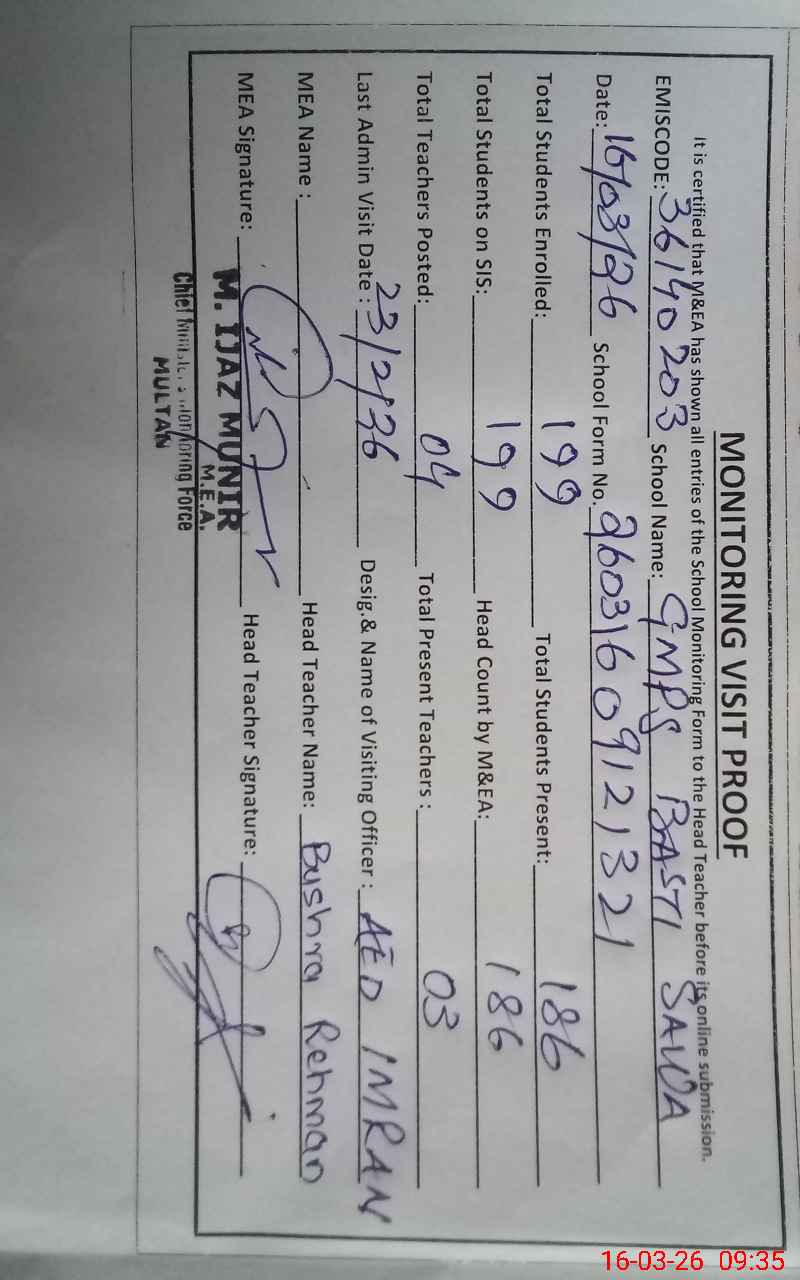 MONITORING VISIT PROOF
It is certified that M&EA has shown all entries of the School Monitoring Form to the Head Teacher before its online submission.
EMISCODE: 36140203 School Name: GMPS BASTI SAWA
Date: 16/03/26 School Form No. 26031609121321
Total Students Enrolled: 199 Total Students Present: 186
Total Students on SIS: 199 Head Count by M&EA: 186
Total Teachers Posted: 04 Total Present Teachers : 03
Last Admin Visit Date : 23/2/26 Desig.& Name of Visiting Officer : AEO IMRAN
MEA Name : Head Teacher Name: Bushra Rehman
MEA Signature: Head Teacher Signature:
M. IJAZ MUNIR
M.E.A.
Chief Minister's Monitoring Force
MULTAN
16-03-26 09:35